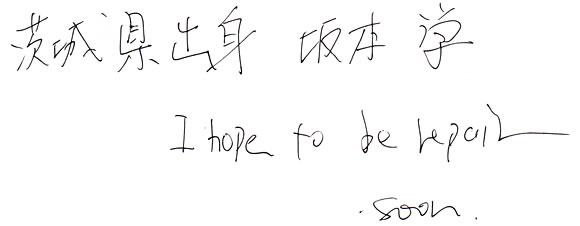 茨城県出身 坂本 学
I hope to be repair
soon.